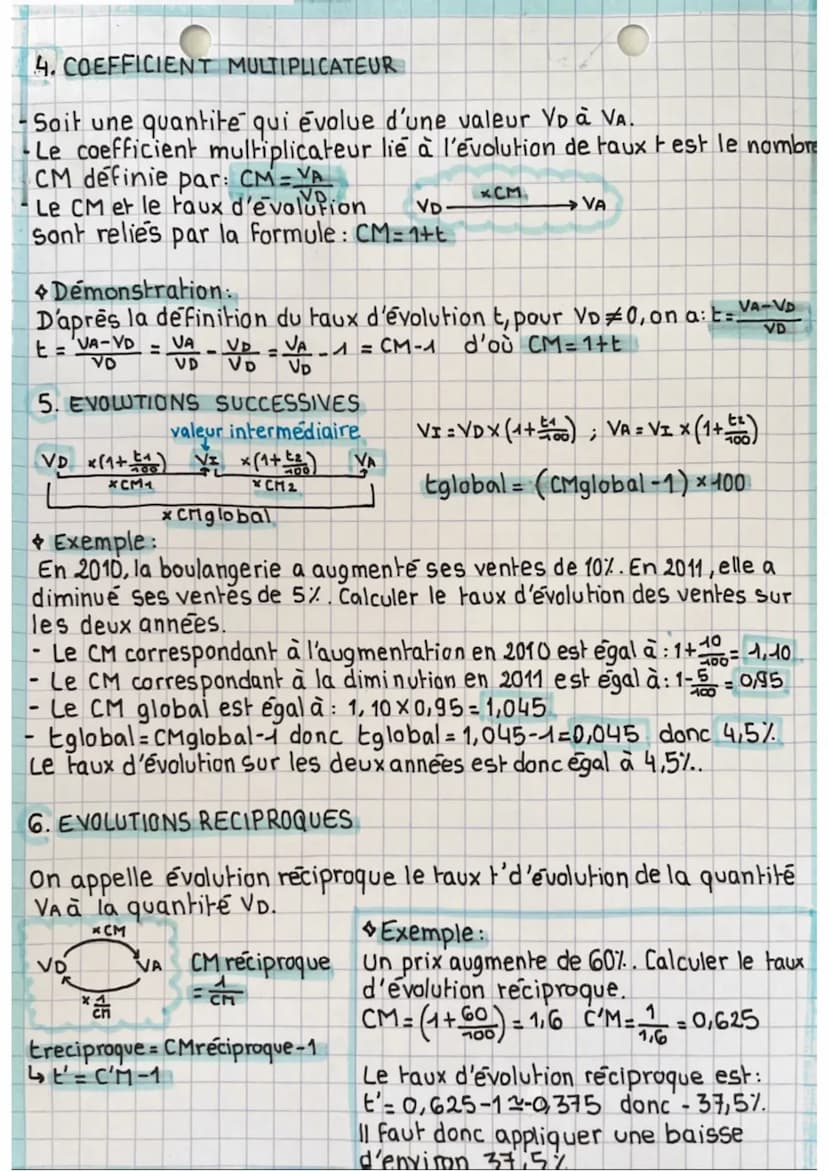 4. COEFFICIENT MULTIPLICATEUR
- Soit une quantité qui évolue d'une valeur VD à VA.
- Le coefficient multiplicateur lié à l'évolution de taux t est le nombre
CM définie par: CM = VA/VD
- Le CM et le taux d'évolution
VD ×CM → VA
sont reliés par la formule : CM = 1+t
❖ Démonstration:
D'après la définition du taux d'évolution t, pour VD ≠ 0, on a : t = VA-VD/VD
t = VA-VD/VD = VA/VD - VD/VD = VA/VD - 1 = CM-1 d'où CM = 1+t
5. EVOLUTIONS SUCCESSIVES
valeur intermédiaire
VI = VD × (1+t1/100) ; VA = VI × (1+t2/100)
VD ×(1+t1/100) VI ×(1+t2/100) VA
×CM1 ×CM2
tglobal = (CMglobal -1) × 100
× CMglobal
❖ Exemple :
En 2010, la boulangerie a augmenté ses ventes de 10%. En 2011, elle a
diminué ses ventes de 5%. Calculer le taux d'évolution des ventes sur
les deux années.
- Le CM correspondant à l'augmentation en 2010 est égal à : 1+10/100 = 1,10
- Le CM correspondant à la diminution en 2011 est égal à : 1-5/100 = 0,95
- Le CM global est égal à : 1,10 × 0,95 = 1,045
- tglobal = CMglobal-1 donc tglobal = 1,045-1=0,045 donc 4,5%
Le taux d'évolution sur les deux années est donc égal à 4,5%.
6. EVOLUTIONS RECIPROQUES
On appelle évolution réciproque le taux t' d'évolution de la quantité
VA à la quantité VD.
×CM
VD VA
× 1/CM
CM réciproque
= 1/CM
treciproque = CMréciproque-1
↳ t' = C'M-1
❖ Exemple :
Un prix augmente de 60%. Calculer le taux
d'évolution réciproque.
CM = (1+60/100) = 1,6 C'M = 1/1,6 = 0,625
Le taux d'évolution réciproque est :
t' = 0,625-1 ≃ -0,375 donc - 37,5%.
Il faut donc appliquer une baisse
d'environ 37,5%